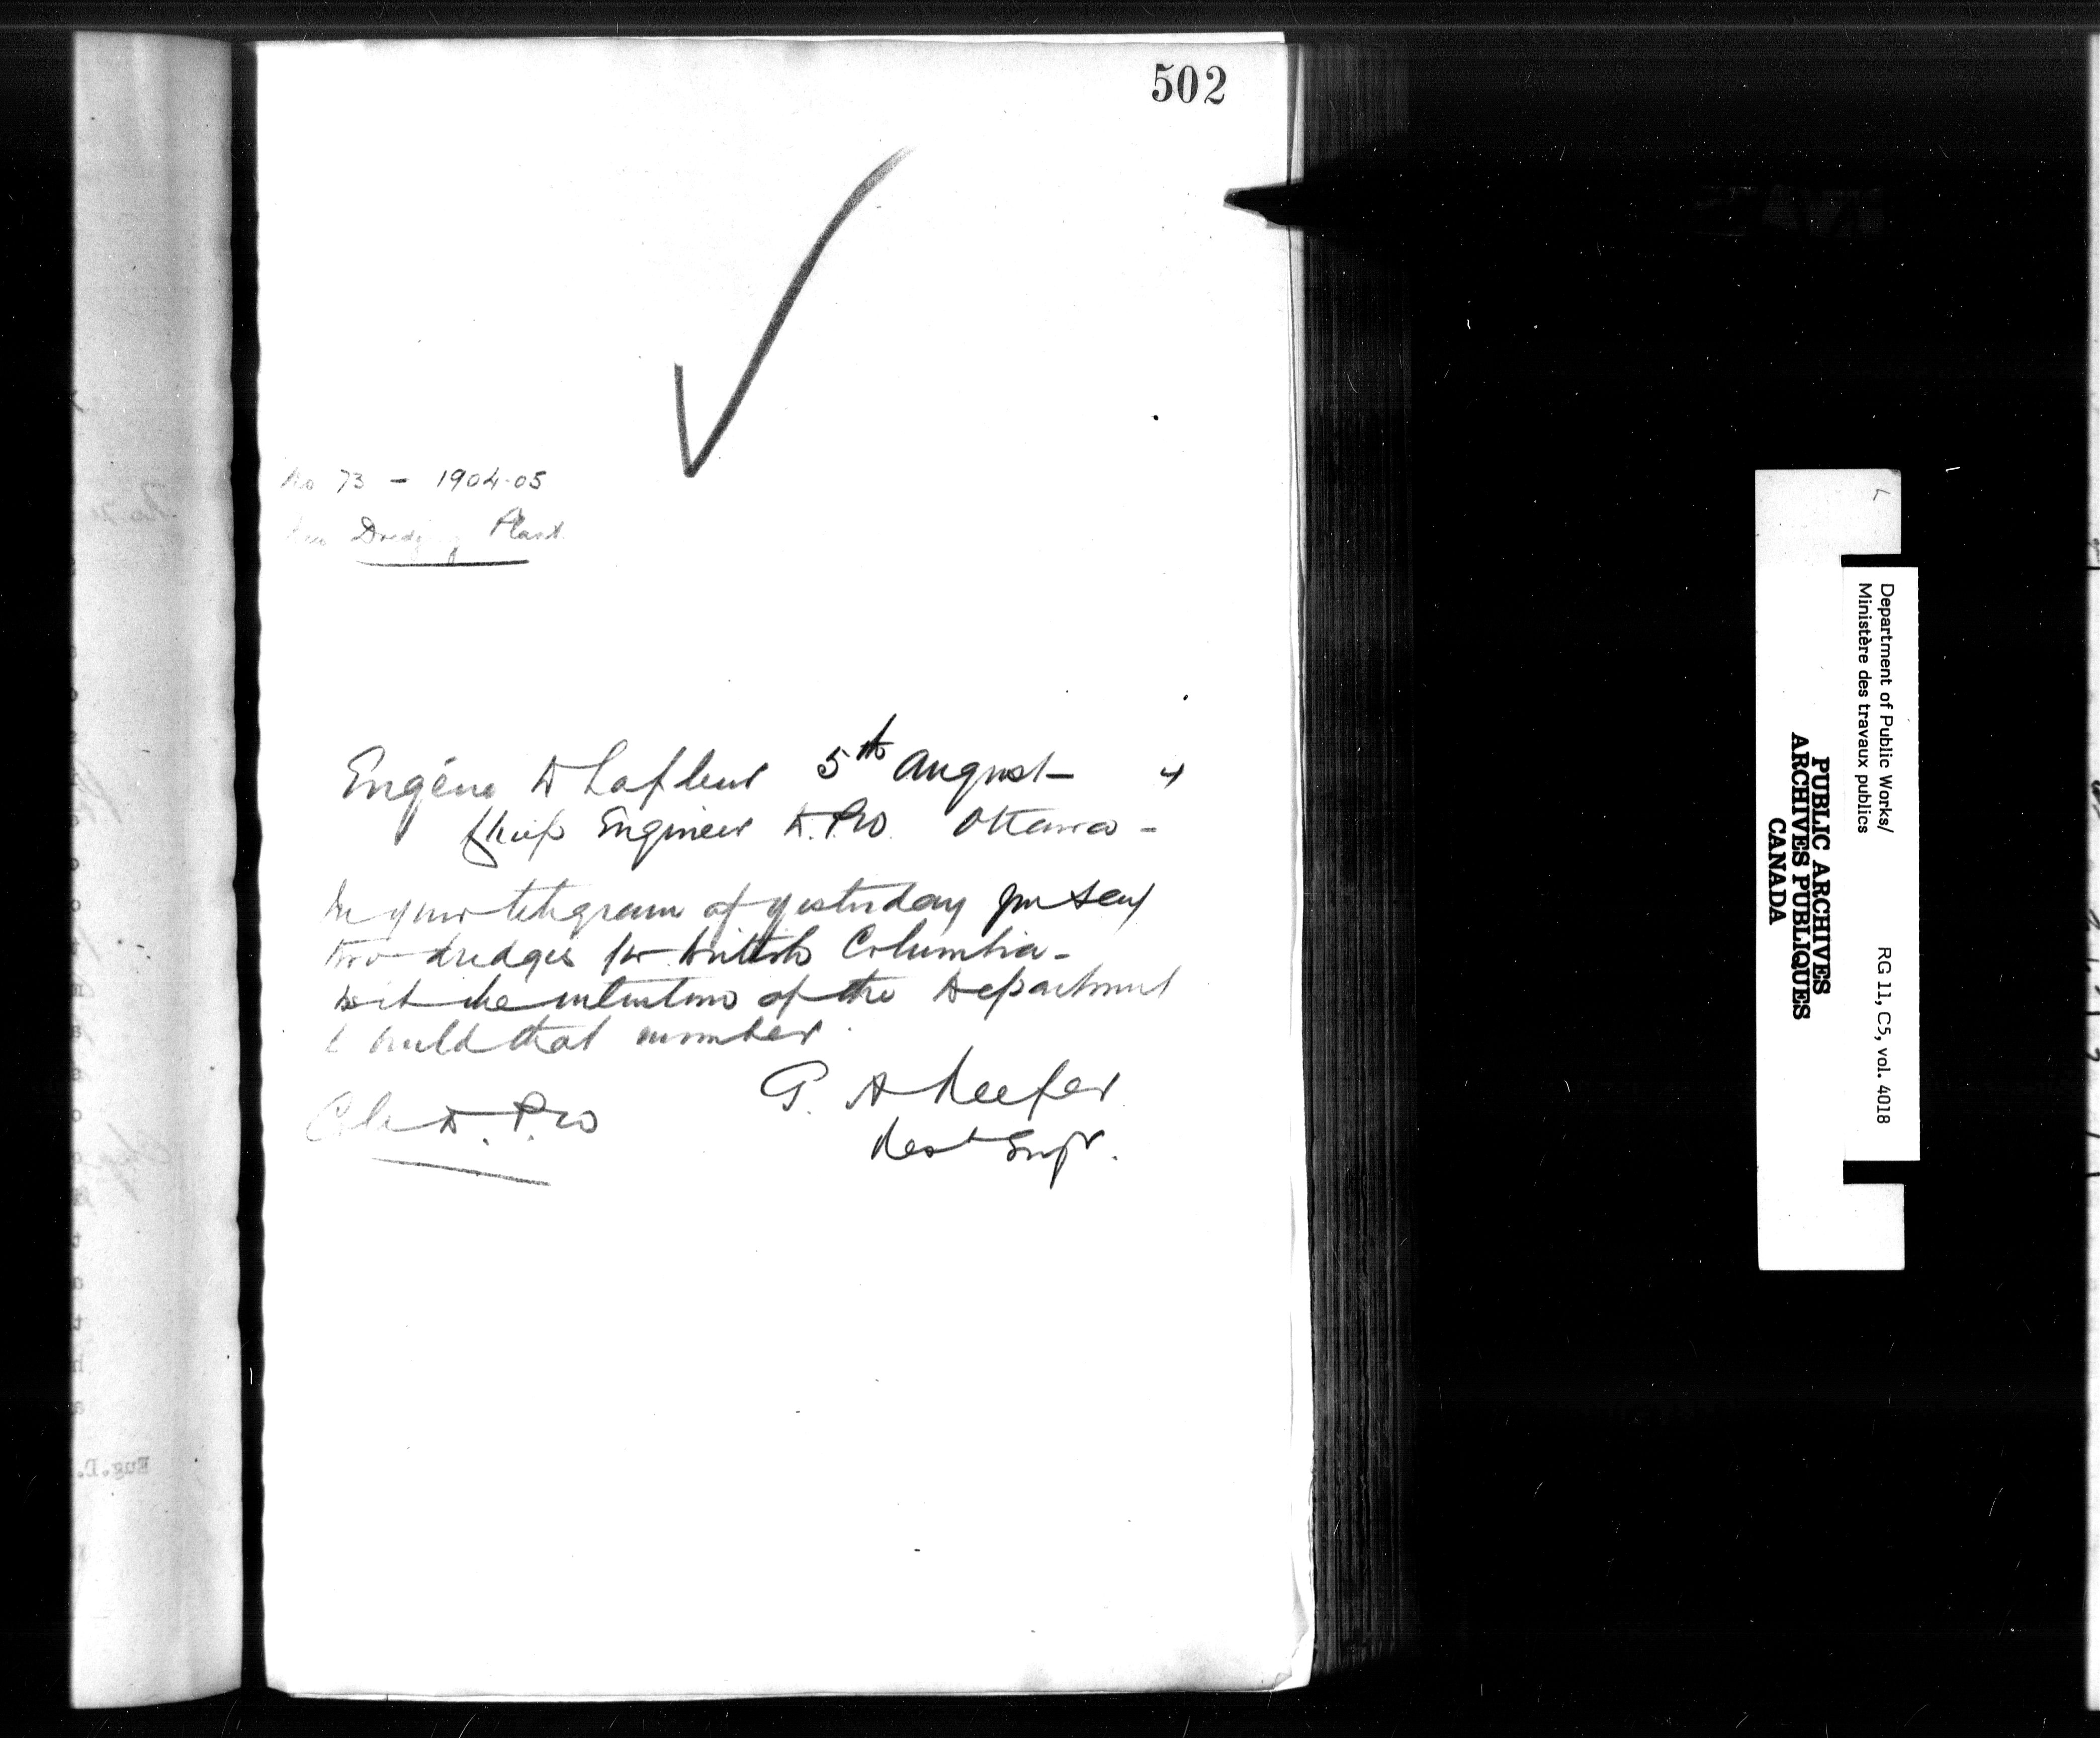 502
No 73 - 1904-05
New Dredging Plant
Eugéne D Lafleur 5th August 4
Chief Engineer D.P.W. Ottawa -
In your telegram of yesterday you say
two dredges for British Columbia -
Is it the intention of the Department
to build that number.
G. A Keefer
Rest Engr.
Ch D. P.W
Department of Public Works/
Ministère des travaux publics
RG 11, C5, vol. 4018
PUBLIC ARCHIVES
ARCHIVES PUBLIQUES
CANADA
Eug.D.